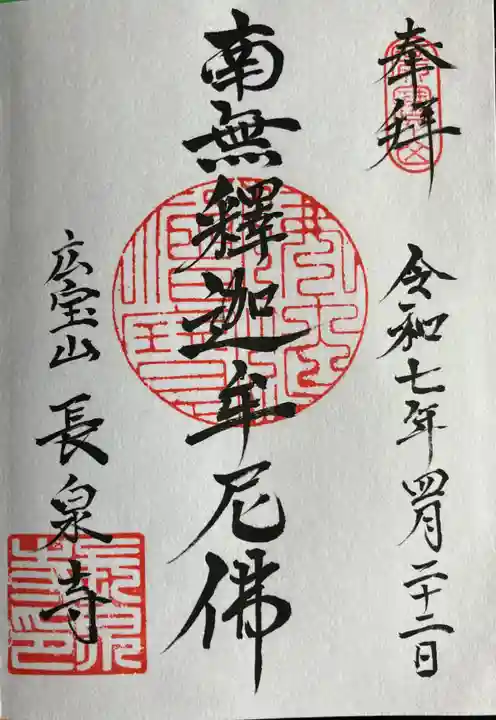 奉拝
令和七年四月二十二日
南無釋迦牟尼佛
広宝山 長泉寺